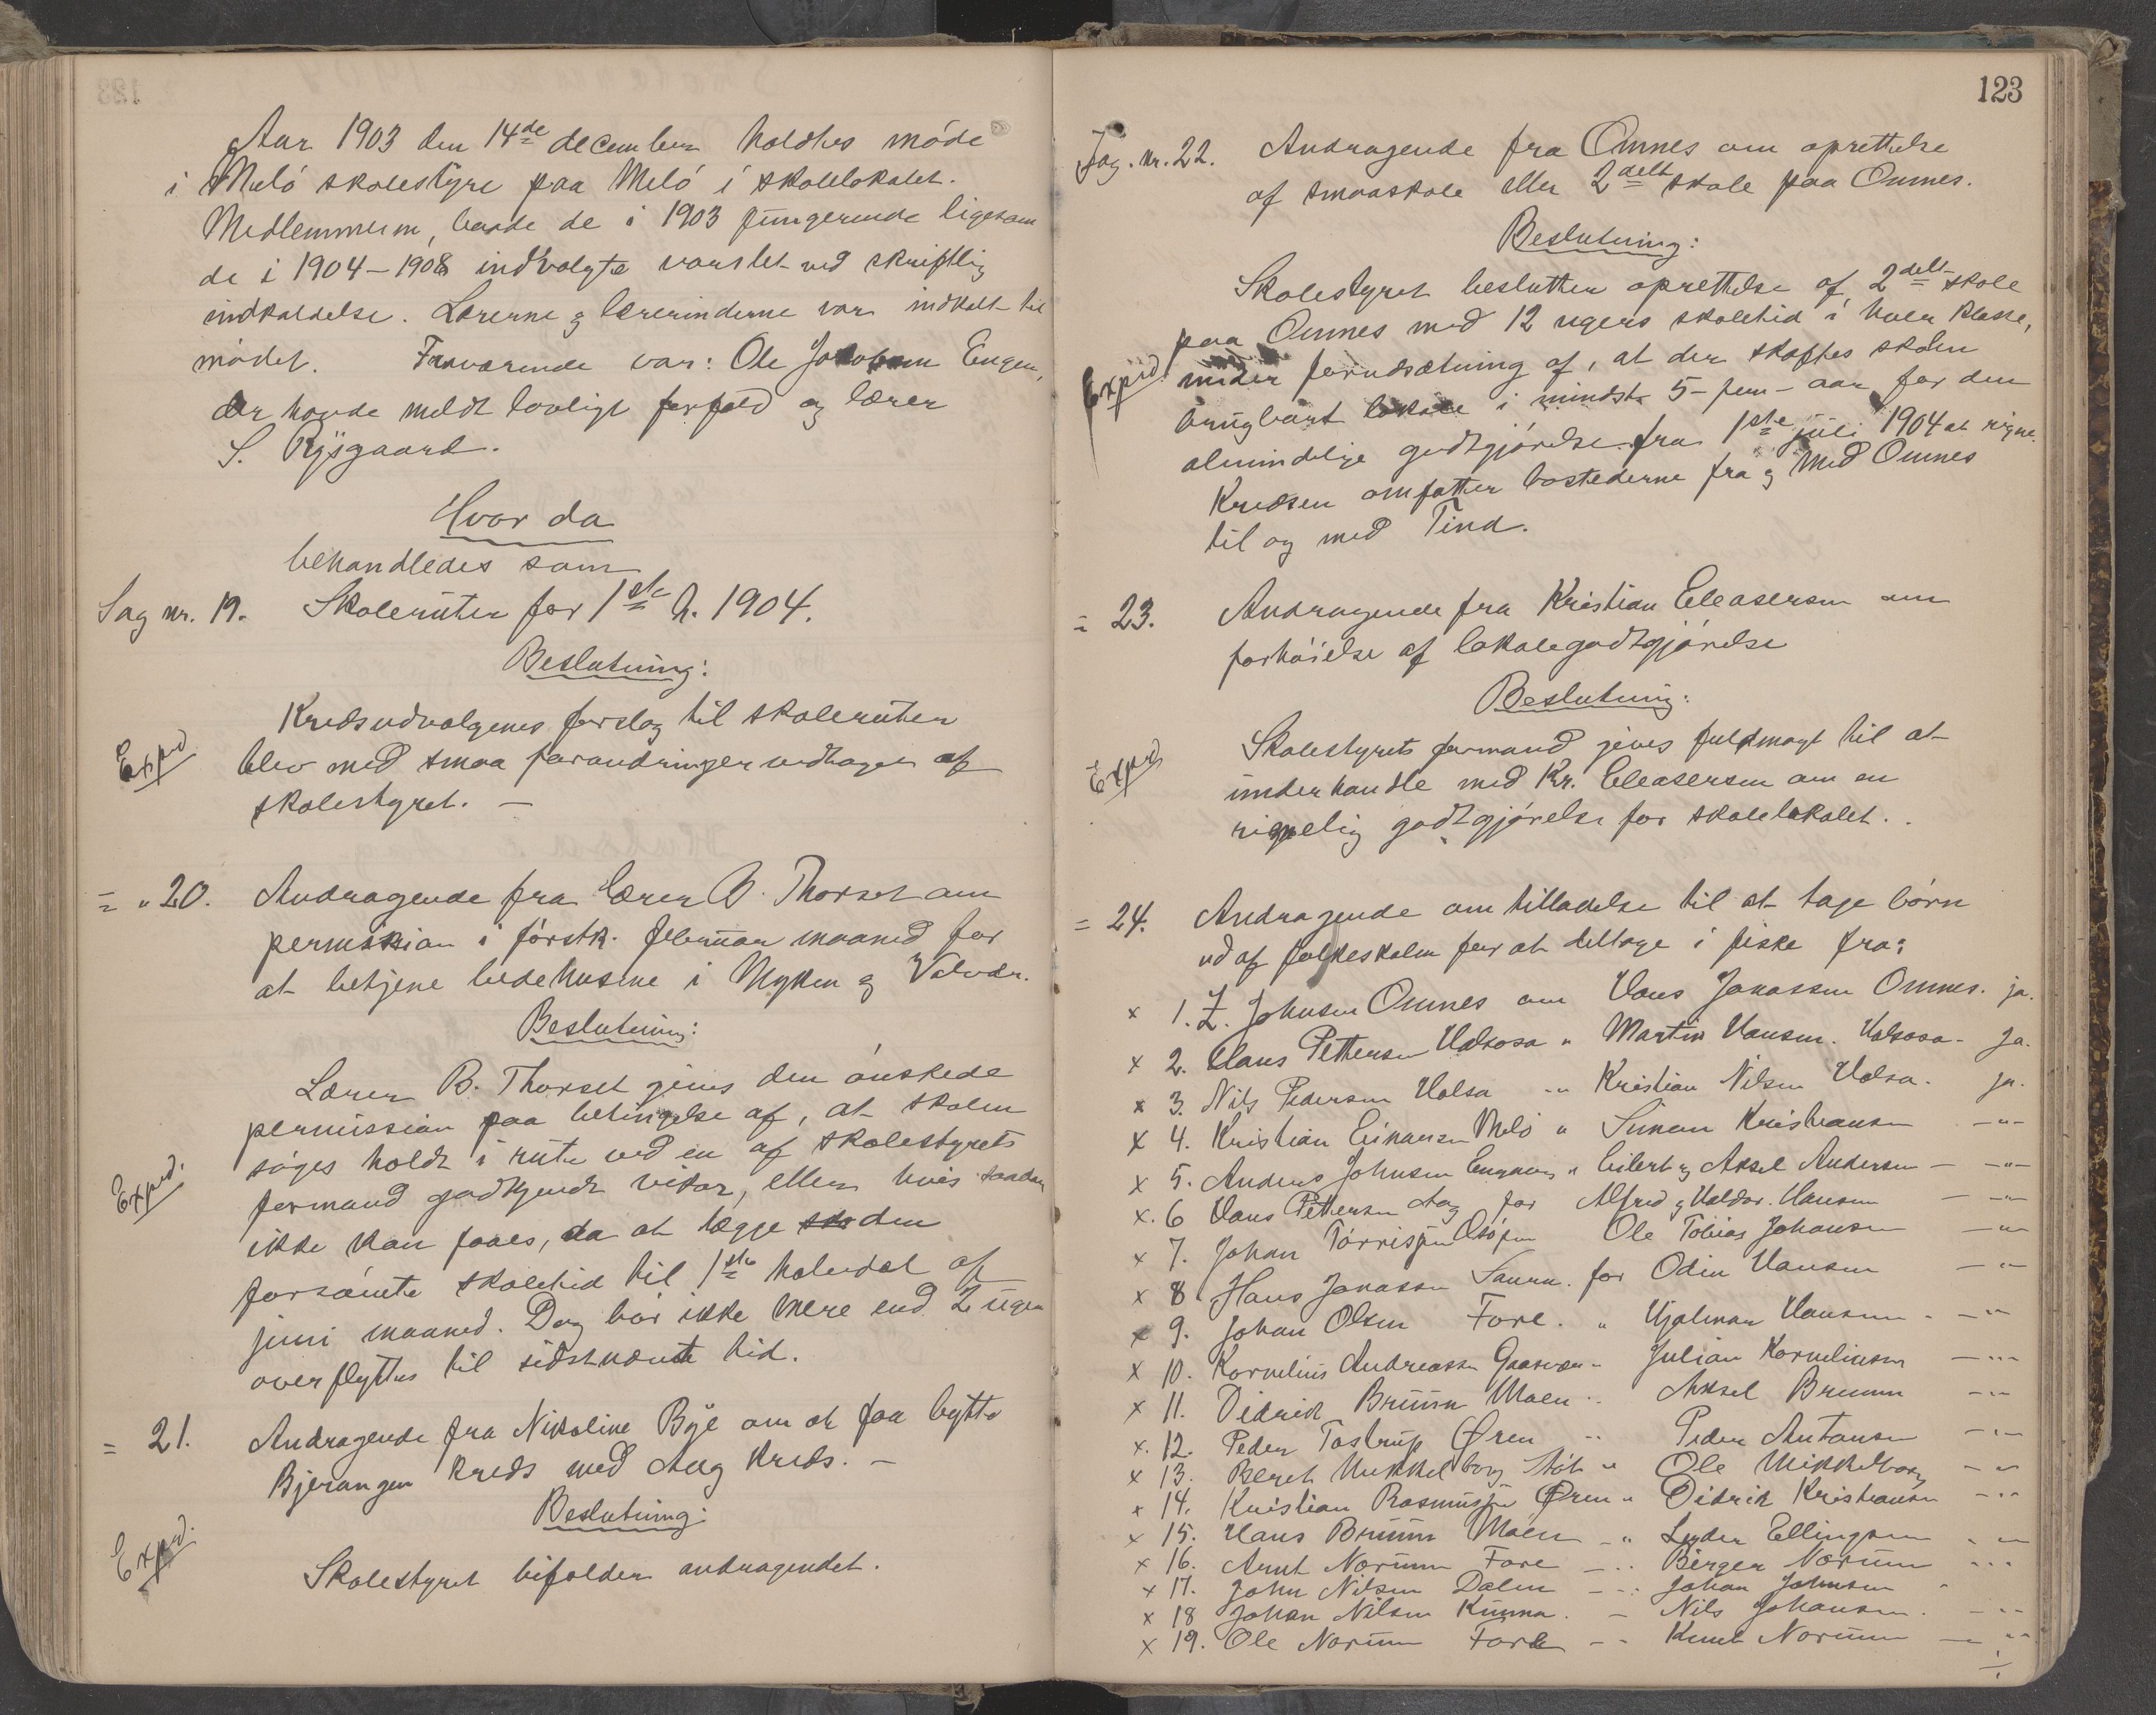 Aar 1903 den 14de december holdtes møde
i Melö skolestyre paa Melö i skolelokalet.
Medlemmerne, baade de i 1903 fungerende ligesom
de i 1904-1908 indvalgte varslet ved skriftlig
indkaldelse. Lærerne & lærerinderne var indkalt til
mødet. Fraværende var: Ole Jakobsen Engen,
der havde meldt lovligt forfald og lærer
S. Rysgaard.
Hvor da
behandledes som
Sag nr. 19. Skoleruter for 1ste h. 1904.
Beslutning:
Kredsudvalgenes forslag til skoleruter
Exped
blev med smaa forandringer vedtaget af
skolestyret. —
= " 20. Andragende fra lærer B. Thorset om
permission i førstk. februar maaned for
at betjene bedehusene i Myken & Valvær.
Beslutning:
Lærer B. Thorset gives den ønskede
permission paa betingelse af, at skolen
søges holdt i rute ved en af skolestyrets
Exped.
formand godkjendt vikar, eller hvis saadan
ikke kan faaes, da at lægge den
forsømte skoletid til 1ste halvdel af
juni maaned. Dog bør ikke mere end 2 uger
overflyttes til sidstnævnte tid.
= 21. Andragende fra Nikoline Bye om at faa bytte
Bjerangen kreds med Aag kreds. —
Beslutning:
Exped.
Skolestyret bifalder andragendet.
123
Sag. nr. 22. Andragende fra Omnes om oprettelse
af smaaskole eller 2delt skole paa Omnes.
Beslutning:
Skolestyret beslutter oprettelse af 2delt skole
paa Omnes med 12 ugers skoletid i hver klasse,
Exped
under forudsætning af, at der skaffes skolen
brugbart lokale i mindst 5-fem- aar for den
almindelige godtgjørelse fra 1ste juli 1904 at regne.
Kredsen omfatter bostederne fra & med Omnes
til og med Tind.
= 23. Andragende fra Kristian Eleasersen om
forhöielse af lokalegodtgjørelse
Beslutning:
Skolestyrets formand gives fuldmagt til at
Exped
underhandle med Kr. Eleasersen om en
rimelig godtgjørelse for skolelokalet.
= 24. Andragende om tilladelse til at tage børn
ud af folkeskolen for at deltage i fiske fra:
x 1. Z. Johnsen Omnes om Hans Jonassen Omnes. ja.
x 2. Hans Pettersen Halsosa " Martin Hansen. Halsosa - ja.
x 3. Nils Pedersen Halsa -"- Kristian Nilsen Halsa. ja.
x 4. Kristian Melö " Simon Kristiansen -"-
x 5. Anders Johnsen " Eilert & Aksel Andersen — -"-
x. 6 Hans Pettersen Aag for Alfred & Haldor. Hansen — -"-
x 7. Johan Tørrisen Ole Tobias Johansen — "
x 8 Hans Jonassen Saura. for Odin Hansen — "
x 9. Johan Olsen Fore. " Hjalmar Hansen - — "
x 10. Kornelius Andreassen Gaasvær " Julian Korneliussen — "
x 11. Didrik Bruun Moen " Aksel Bruun — "
x. 12. Peder Tostrup Øren " Peder Antonsen — "
x 13. Beret Mikkelborg Støt " Ole Mikkelborg — "
x 14. Kristian Rasmussen Øren " Didrik Kristiansen — "
x 15. Hans Bruun Moen — " Lyder Ellingsen - "
x 16. Arnt Norum Fore — " Birger Norum "
x 17. John Nilsen Dalen — " Johan Johnsen "
x 18 Johan Nilsen Kunna. — Nils Johansen. — "
x 19. Ole Norum Fore — " Knut Norum — "